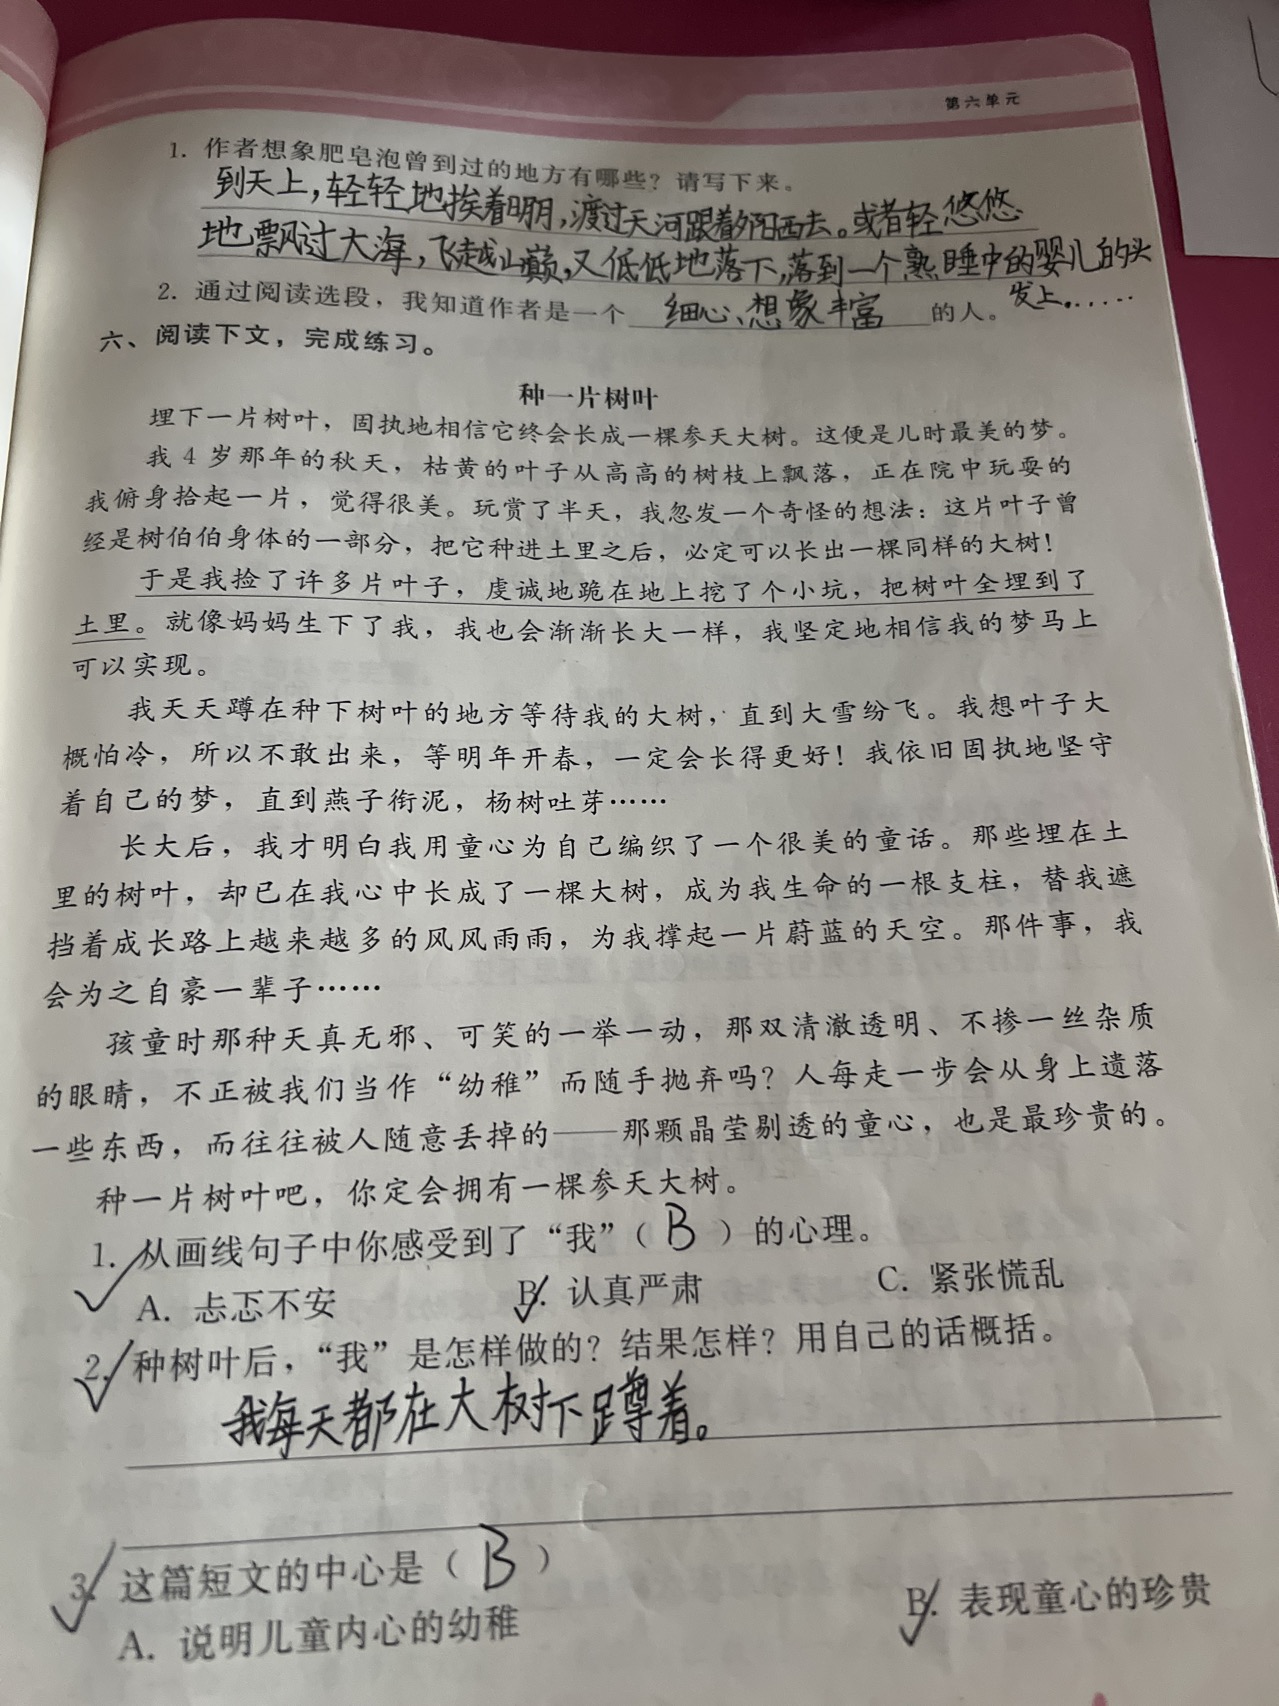 第六单元
1. 作者想象肥皂泡曾到过的地方有哪些？请写下来。
到天上，轻轻地挨着明月，渡过天河跟着夕阳西去。或者轻悠悠
地飘过大海，飞越山巅，又低低地落下，落到一个熟睡中的婴儿的头
发上。……
2. 通过阅读选段，我知道作者是一个 细心、想象丰富 的人。
六、阅读下文，完成练习。
种一片树叶
埋下一片树叶，固执地相信它终会长成一棵参天大树。这便是儿时最美的梦。
我 4 岁那年的秋天，枯黄的叶子从高高的树枝上飘落，正在院中玩耍的
我俯身拾起一片，觉得很美。玩赏了半天，我忽发一个奇怪的想法：这片叶子曾
经是树伯伯身体的一部分，把它种进土里之后，必定可以长出一棵同样的大树！
于是我捡了许多片叶子，虔诚地跪在地上挖了个小坑，把树叶全埋到了
土里。就像妈妈生下了我，我也会渐渐长大一样，我坚定地相信我的梦马上
可以实现。
我天天蹲在种下树叶的地方等待我的大树，直到大雪纷飞。我想叶子大
概怕冷，所以不敢出来，等明年开春，一定会长得更好！我依旧固执地坚守
着自己的梦，直到燕子衔泥，杨树吐芽……
长大后，我才明白我用童心为自己编织了一个很美的童话。那些埋在土
里的树叶，却已在我心中长成了一棵大树，成为我生命的一根支柱，替我遮
挡着成长路上越来越多的风风雨雨，为我撑起一片蔚蓝的天空。那件事，我
会为之自豪一辈子……
孩童时那种天真无邪、可笑的一举一动，那双清澈透明、不掺一丝杂质
的眼睛，不正被我们当作“幼稚”而随手抛弃吗？人每走一步会从身上遗落
一些东西，而往往被人随意丢掉的——那颗晶莹剔透的童心，也是最珍贵的。
种一片树叶吧，你定会拥有一棵参天大树。
1. 从画线句子中你感受到了“我”（ B ）的心理。
A. 忐忑不安 B. 认真严肃 C. 紧张慌乱
2. 种树叶后，“我”是怎样做的？结果怎样？用自己的话概括。
我每天都在大树下蹲着。
3. 这篇短文的中心是（ B ）
A. 说明儿童内心的幼稚 B. 表现童心的珍贵